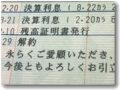 2-20 決算利息 ( 8-22から
3-20 決算利息 ( 2-20から
10 残高証明書発行
29 解約
永らくご愛顧いただき、
今後ともよろしくお引立